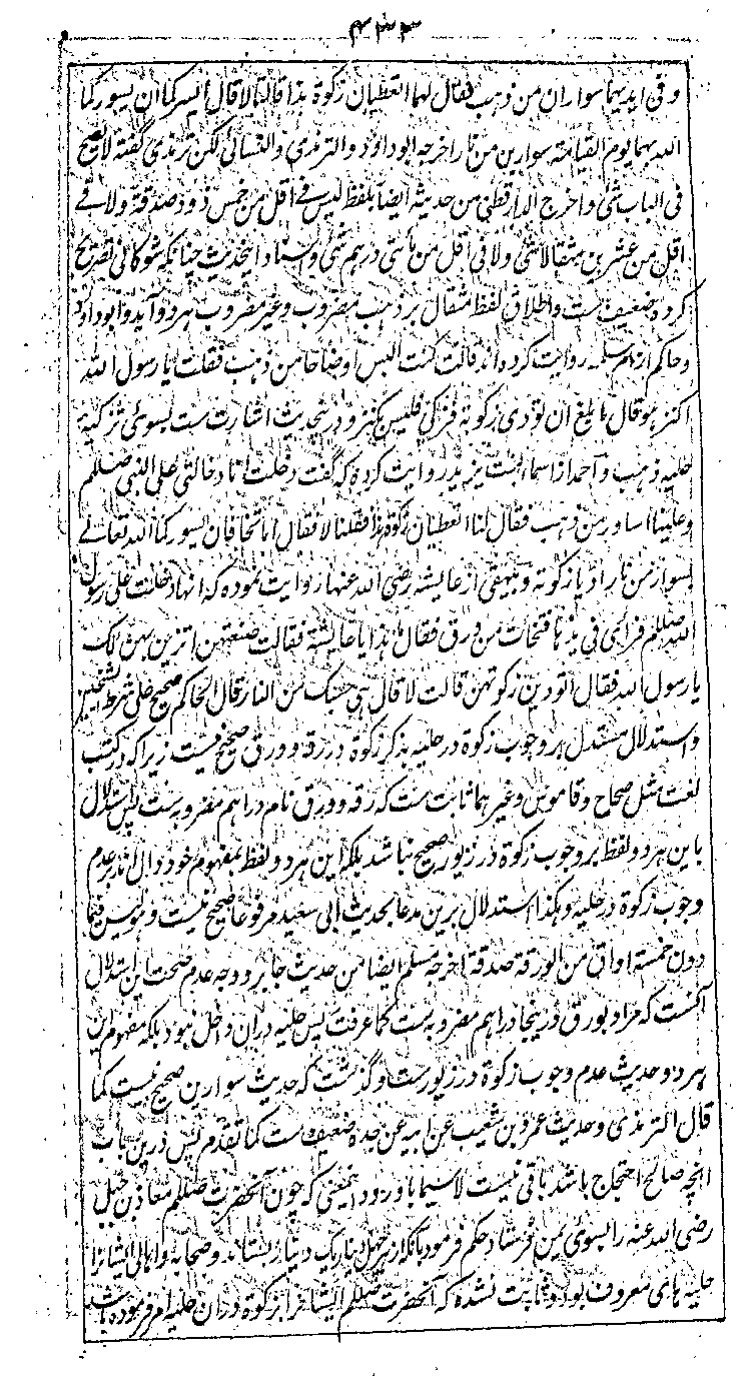 ۴۳۳
وفی ایدیهما سواران من ذهب فقال لهما اتعطیان زکوة هذا قالتا لا قال ایسرکما ان یسورکما
الله بهما یوم القیامة سوارین من نار اخرجه ابوداود والترمذی والنسائی لکن ترمذی گفته لا یصح
فی الباب شئ واخرج الدارقطنی من حدیثه ایضا بلفظ لیس فی اقل من خمس ذود صدقة ولا فی
اقل من عشرین مثقالا شئ ولا فی اقل من مأتی درهم شئ واسناد اینحدیث چنانکه شوکانی تصریح
کرده ضعیف ست واطلاق لفظ مثقال بر ذهب مضروب وغیر مضروب هر دو آید وابوداود
وحاکم از ام سلمه روایت کرده اند قالت کنت البس اوضاحا من ذهب فقلت یا رسول الله
اکنز هو قال ما بلغ ان تودی زکوته فزکی فلیس بکنز ودرینحدیث اشارت ست بسوی تزکیه
حلیه ذهب واحمد از اسماء بنت یزید روایت کرده که گفت دخلت انا وخالتی علی النبی صللم
وعلینا اساور من ذهب فقال لنا اتعطیان زکوة هذا فقلنا لا فقال اما تخافان ان یسورکما الله تعالی
بسوار من نار ادیا زکوته وبیهقی از عایشه رضی الله عنها روایت نموده که انها دخلت علی رسول
الله صللم فرای فی یدها فتخات من ورق فقال ما هذا یا عایشة فقالت صنعتهن اتزین بهن لک
یا رسول الله فقال اتودین زکوتهن قالت لا قال هی حسبک من النار قال الحاکم صحیح علی شرط الشیخین
واستدلال مستدل بر وجوب زکوة در حلیه بذکر زکوة در رقه وورق صحیح نیست زیرا که در کتب
لغت مثل صحاح وقاموس وغیر هما ثابت ست که رقه وورق نام دراهم مضروبه ست پس استدلال
باین هر دو لفظ بر وجوب زکوة در زیور صحیح نباشد بلکه این هر دو لفظ بمفهوم خود دال اند بر عدم
وجوب زکوة در حلیه وهکذا استدلال برین مدعا بحدیث ابی سعید مرفوعا صحیح نیست وهو لیس فیما
دون خمسة اواق من الورق صدقة اخرجه مسلم ایضا من حدیث جابر ووجه عدم صحت این استدلال
آنست که مراد بورق درینجا دراهم مضروبه ست کما عرفت پس حلیه دران داخل نبود بلکه مفهوم این
هر دو حدیث عدم وجوب زکوة در زیور ست وگذشت که حدیث سوارین صحیح نیست کما
قال الترمذی وحدیث عمرو بن شعیب عن ابیه عن جده ضعیف ست کما تقدم پس درین باب
انچه صالح احتجاج باشد باقی نیست لا سیما با ورود اینمعنی که چون آنحضرت صللم معاذ بن جبل
رضی الله عنه را بسوی یمن فرستاد حکم فرمود بآنکه از هر چهل دینار یک دینار بستاند وصحابه واهالی ایشانرا
حلیه های معروف بود وثابت نشده که آنحضرت صللم ایشانرا بزکوة دران حلیه امر فرموده باشد